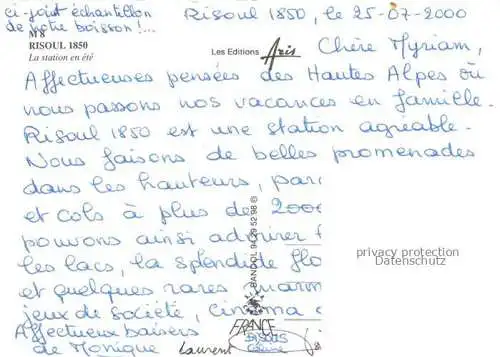 ci-joint échantillon
de notre boisson !...
M 8
RISOUL 1850
La station en été
Les Editions Aris
Risoul 1850, le 25-07-2000
Chère Myriam,
Affectueuses pensées des Hautes Alpes où
nous passons nos vacances en famille.
Risoul 1850 est une station agréable.
Nous faisons de belles promenades
dans les hauteurs, par
et cols à plus de 2000
pouvons ainsi admirer
les lacs, la splendide flo
et quelques rares marm
jeux de société, cinéma
Affectueux baisers
de Monique Laurent
BANDOL 94 29 52 98 ©
FRANCE
privacy protection
Datenschutz